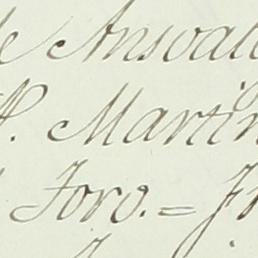 e Ansoald
P. Martin
Foro. = F